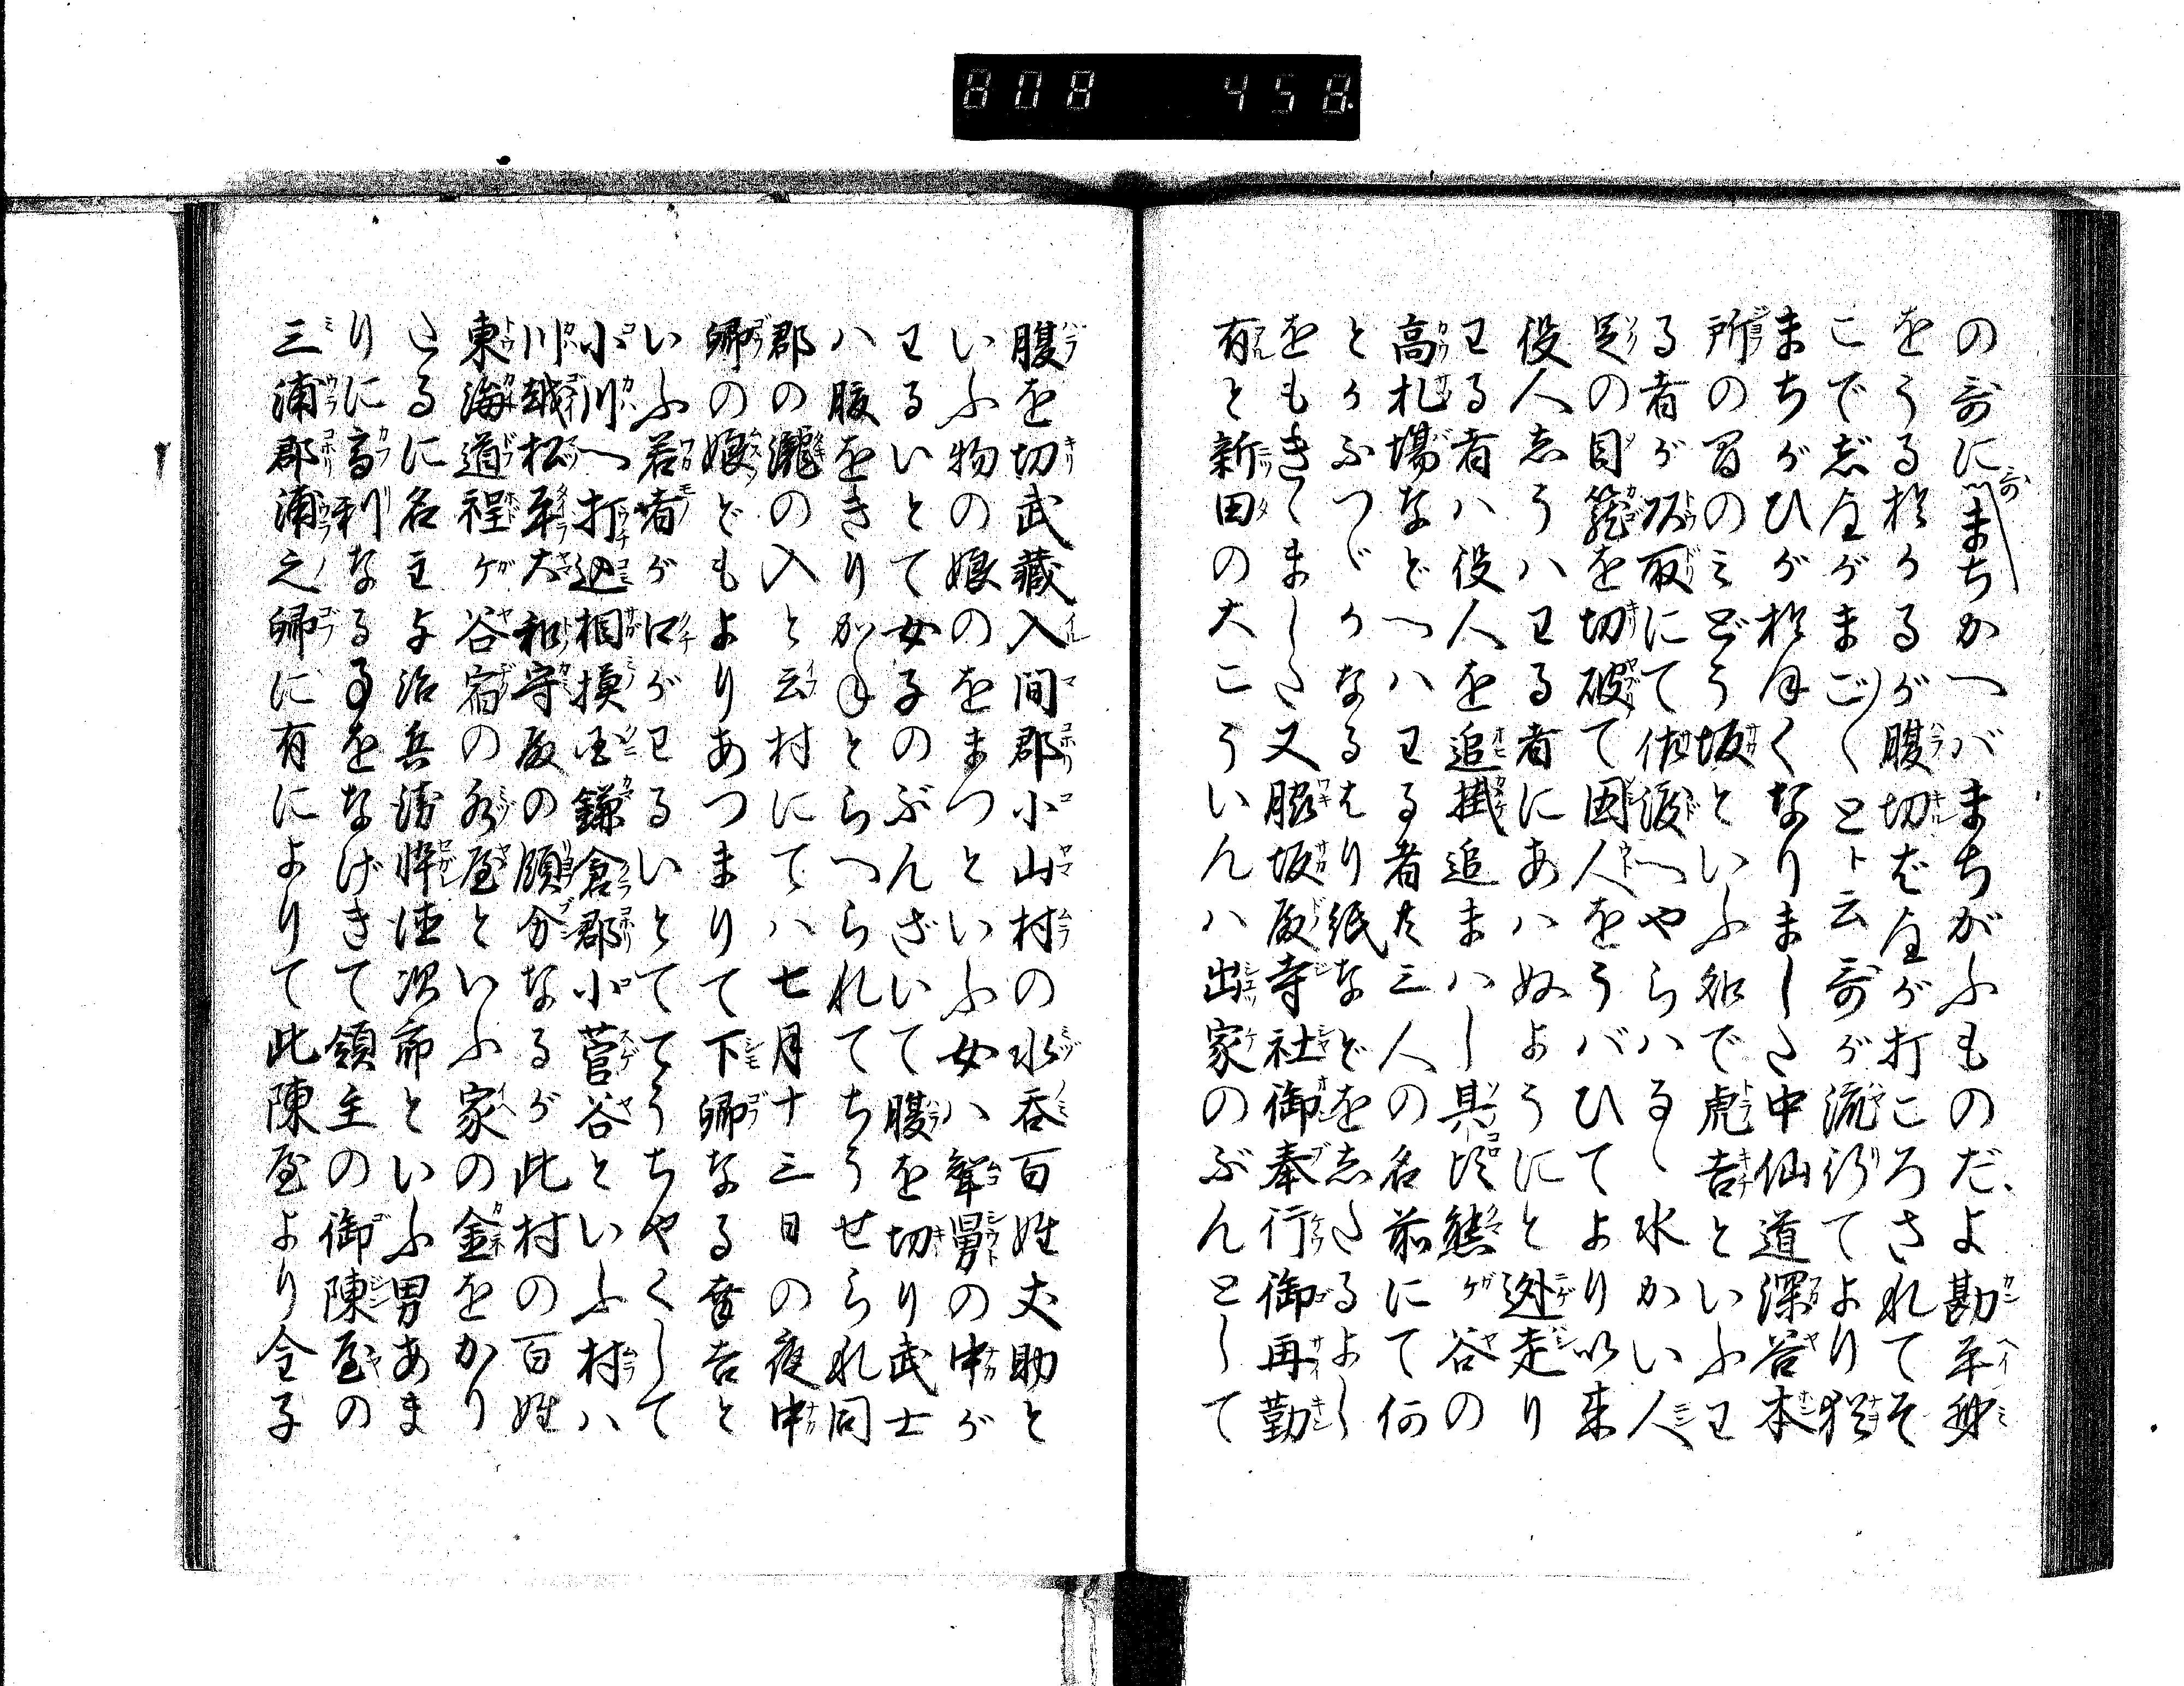 808 458
の哥に哥まちかへバまちがふものだよ勘平身
をうる於かるが腹切だ屋が打ころされてそ
こでお屋がまごまごと云哥が流行てより猶
まちがひが於ほくなりました中仙道深谷本
所の者のミどう坂といふ所で虎吉といふわ
る者が頭取にて佐渡へやらハるゝ水かい人
足の目籠を切破て囚人をうバひてより以来
役人しうハわる者にあハぬようにと迯走り
わる者ハ役人を追掛追まハし其比熊ケ谷の
高札場などへハわる者共三人の名前にて何
とかふつがかなるはり紙などをしたるよし
をもきてました又脇坂殿寺社御奉行御再勤
有と新田の大こういんハ出家のぶんとして
腹を切武蔵入間郡小山村の水呑百姓丈助と
いふ物の娘のをまつといふ女ハ聟舅の中が
わるいとて女子のぶんざいて腹を切り武士
ハ腹をきりかねとらへられてちうせられ同
郡の瀧の入と云村にてハ七月十三日の夜中
郷の娘どもよりあつまりて下郷なる幸吉と
いふ若者が口がわるいとててうちやくして
小川へ打込相摸国鎌倉郡小菅谷といふ村ハ
川越松平大和守殿の領分なるが此村の百姓
東海道程ケ谷宿の水屋といふ家の金をかり
たるに名主与治兵衛悴徳次郎といふ男あま
りに高利なる事をなげきて領主の御陳屋の
三浦郡浦之郷に有によりて此陳屋より令子